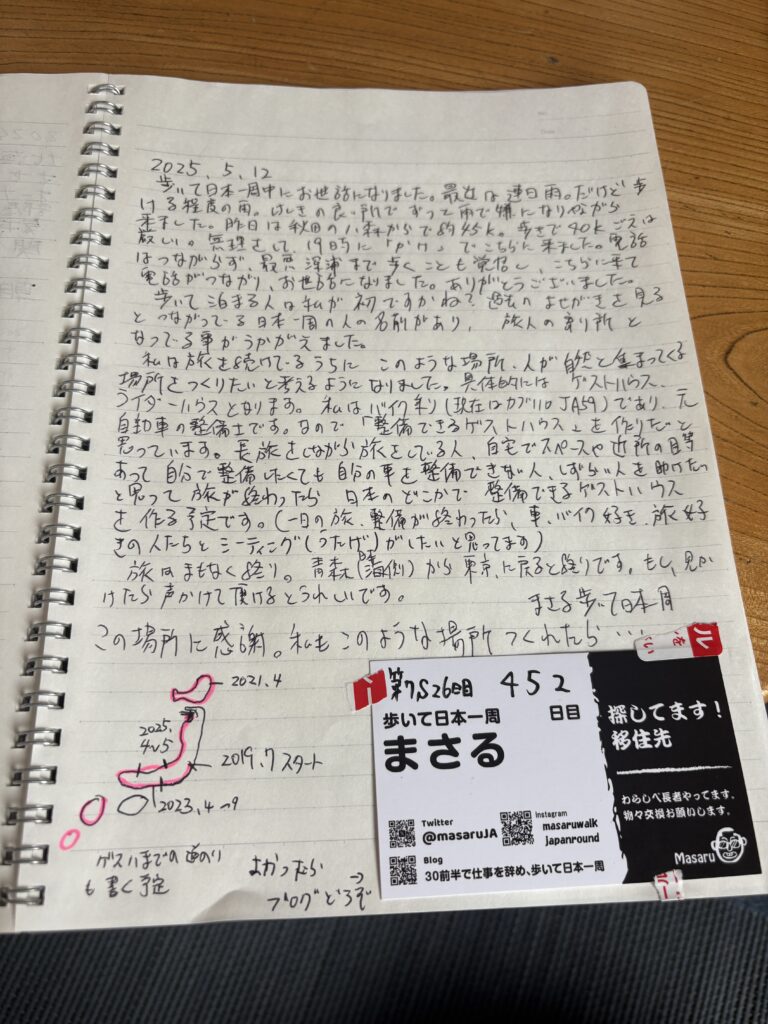 2025.5.12
歩いて日本一周中にお世話になりました。最近は連日雨。だけど歩
ける程度の雨。けしきの良い所でずって雨で嫌になりながら
来ました。昨日は秋田の八森からで約45k。歩きで40kごえは
厳しい。無理をして、19時に「かけ」でこちらに来ました。電話
はつながらず、最悪 深浦まで歩くことも覚悟し、こちらに来て
電話がつながり、お世話になりました。ありがとうございました。
歩いて泊まる人は私が初ですかね?過去のよせがきを見る
とつながっている日本一周の人の名前があり、旅人の寄り所と
なってる事がうかがえました。
私は旅を続けているうちに このような場所、人が自然と集まってくる
場所をつくりたいと考えるようになりました。具体的には ゲストハウス、
ライダーハウスとなります。私はバイク乗り(現在はカブ110 JA59)であり、元
自動車の整備士です。なので「整備できるゲストハウス」を作りたいと
思っています。長旅をしながら旅をしている人、自宅でスペースや近所の目等
あって自分で整備したくても自分の車を整備できない人、しずらい人を助けたい
と思って旅が終わったら 日本のどこかで 整備できるゲストハウス
を作る予定です。(一日の旅、整備が終わったら、車、バイク好き、旅好
きの人たちとミーティング(うたげ)がしたいと思ってます)
旅はまもなく終り。青森から東京に戻ると終りです。もし、見か
けたら声かけて頂けるとうれしいです。
まさる歩いて日本一周
この場所に感謝。私もこのような場所つくれたら...
2021.4
2025.
4~5
2019.7 スタート
2023.4~9
ゲストハまでの道のり
も書く予定
よかったら
ブログどうぞ→
452
歩いて日本一周 日目
まさる
Twitter
@masaruJA
Instagram
masaruwalk
japanround
Blog
30前半で仕事を辞め、歩いて日本一周
探してます!
移住先
わらしべ長者やってます。
物々交換お願いします。
Masaru